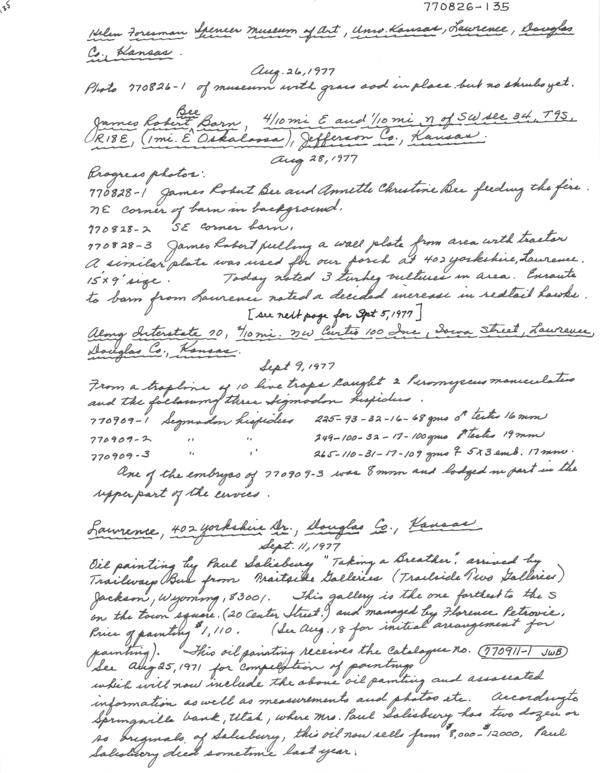 770826-135
135
Helen Foresman Spencer Museum of Art, Univ. Kansas, Lawrence, Douglas
Co., Kansas.
Aug. 26, 1977
Photo 770826-1 of museum with grass sod in place but no shrubs yet.
Bee
James Robert Barn, 4/10 mi E and 1/10 mi n of SW sec 34, T9S,
R18E, (1 mi. E Oskaloosa), Jefferson Co., Kansas.
Aug 28, 1977
Progress photos:
770828-1 James Robert Bee and Annette Christine Bee feeding the fire.
NE corner of barn in background.
770828-2 SE corner barn.
770828-3 James Robert pulling a wall plate from area with tractor
A similar plate was used for our porch at 402 Yorkshire, Lawrence.
15'x9' size. Today noted 3 turkey vultures in area. Enroute
to barn from Lawrence noted a decided increase in redtail hawks.
[see next page for Sept 5, 1977]
Along Interstate 70, 4/10 mi. NW Curtis 100 Inc, Iowa Street, Lawrence,
Douglas Co., Kansas.
Sept 9, 1977
From a trapline of 10 live traps caught 2 Peromyscus maniculatus
and the following three Sigmodon hispidus.
770909-1 Sigmodon hispidus 225-93-32-16-68 gms ♂ testis 16 mm
770909-2 " " 249-100-32-17-100 gms ♂ testis 19 mm
770909-3 " " 265-110-31-17-109 gms ♀ 5x3 emb. 17 mm.
One of the embryos of 770909-3 was 8 mm and lodged in part in the
upper part of the cervix.
Lawrence, 402 Yorkshire Dr., Douglas Co., Kansas
Sept. 11, 1977
Oil painting by Paul Salisbury "Taking a Breather", arrived by
Trailways Bus from Trailside Galleries (Trailside Two Galleries)
Jackson, Wyoming, 83001. This gallery is the one farthest to the S
on the town square. (20 Center Street.) and managed by Florence Petrovic.
Price of painting $1,110. (See Aug. 18 for initial arrangement for
painting). This oil painting receives the Catalogue no. 770911-1 JWB
See Aug 25, 1971 for compilation of paintings
which will now include the above oil painting and associated
information as well as measurements and photos etc. According to
Springville bank, Utah, where Mrs. Paul Salisbury has two dozen or
so originals of Salisbury, this oil now sells from $8,000-$12000. Paul
Salisbury died sometime last year.